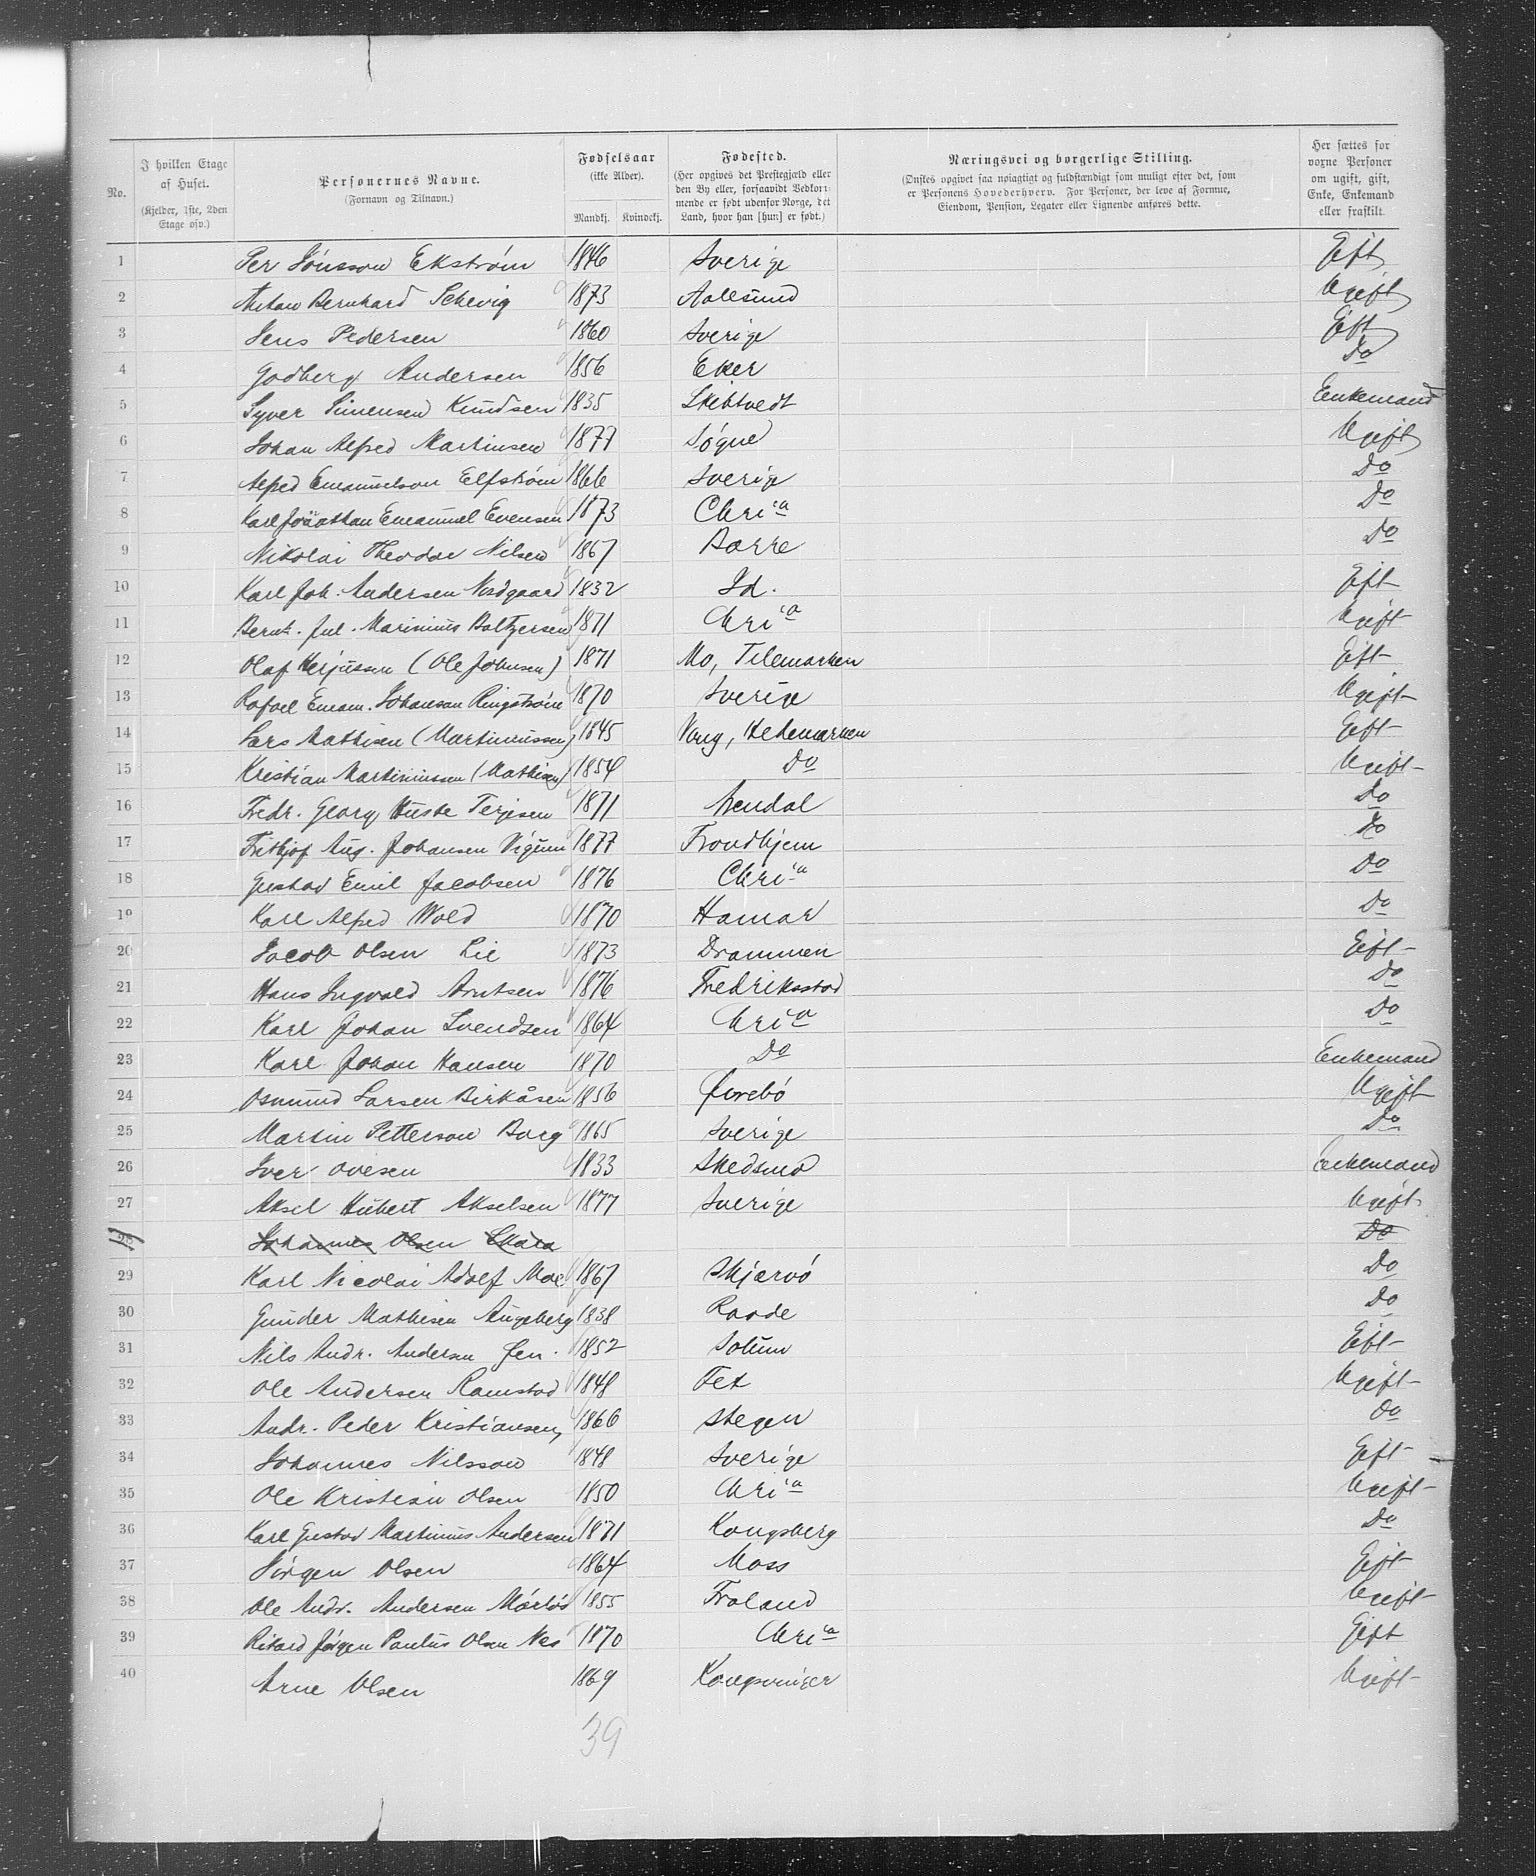 No.
I hvilken Etage af Huset.
(Kjelder, 1ste, 2den Etage osv.)
Personernes Navne.
(Fornavn og Tilnavn.)
Fødselsaar
(ikke Alder).
Mandkj. Kvindekj.
Fødested.
(Her opgives det Prestegjæld eller
den By eller, forsaavidt Vedkom-
mende er født udenfor Norge, det
Land, hvor han [hun] er født.)
Næringsvei og borgerlige Stilling.
(Ønskes opgivet saa nøiagtigt og fuldstændigt som muligt efter det, som
er Personens Hovederhverv. For Personer, der leve af Formue,
Eiendom, Pension, Legater eller Lignende anføres dette.
Her sættes for
voxne Personer
om ugift, gift,
Enke, Enkemand
eller fraskilt.
1 Per Jónsson Ekstrøm 1846 Sverige Gift
2 Anton Bernhard Schevig 1873 Aalesund Ugift
3 Jens Pedersen 1860 Sverige Gift
4 Godberg Andersen 1856 Eker Do
5 Syver Simensen Knudsen 1835 Skibtvedt Enkemand
6 Johan Alfred Martinsen 1877 Søgne Ugift
7 Alfred Emanuelson Elfstrøm 1866 Sverige Do
8 Karl Jonathan Emanuel Evensen 1873 Chria Do
9 Nikolai Theodor Nilsen 1867 Borre Do
10 Karl Joh. Andersen Nordgaard 1832 Id. Gift
11 Bernt. Jul. Marinius Baltzersen 1871 Chria Ugift
12 Olaf Herjussen (Ole Johnsen) 1871 Mo, Telemarken Gift
13 Rafael Eman. Johanson Ringstrøm 1870 Sverige Ugift
14 Lars Mathisen (Martinussen) 1845 Vang, Hedemarken Gift
15 Kristian Martinussen (Mathisen) 1854 Do Ugift
16 Fredr. Georg Huste Terjesen 1871 Arendal Do
17 Fritjof Aug. Johansen Vigum 1877 Trondhjem Do
18 Gustav Emil Jacobsen 1876 Chria Do
19 Karl Alfred Wold 1870 Hamar Do
20 Jacob Olsen Lie 1873 Drammen Gift
21 Hans Ingvald Arntsen 1876 Fredriksstad Do
22 Karl Johan Svendsen 1864 Chria Do
23 Karl Johan Hansen 1870 Do Enkemand
24 Osmund Larsen Birkåsen 1856 Øvrebø Ugift
25 Martin Petterson Borg 1865 Sverige Do
26 Iver Ovesen 1833 Skedsmo Enkemand
27 Aksel Hubert Akselsen 1877 Sverige Ugift
28 Johannes Olsen Do
29 Karl Nicolai Adolf Moe 1867 Skjærvö Do
30 Gunder Mathisen Augeberg 1838 Raade Do
31 Nils Andr. Andersen Jen. 1852 Solum Gift
32 Ole Andersen Ramstad 1848 Fet Ugift
33 Andr. Peder Kristiansen, 1866 Stegen Do
34 Johannes Nilsson 1848 Sverige Gift
35 Ole Kristian Olsen 1850 Chria Ugift
36 Karl Gustav Martinius Andersen 1871 Kongsberg Do
37 Jörgen Olsen 1864 Moss Gift
38 Ole Andr. Andersen 1855 Froland Ugift
39 Rikard Jørgen Paulus Olsen Nes 1870 Chria Gift
40 Arne Olsen 1869 Kongsvinger Ugift
39